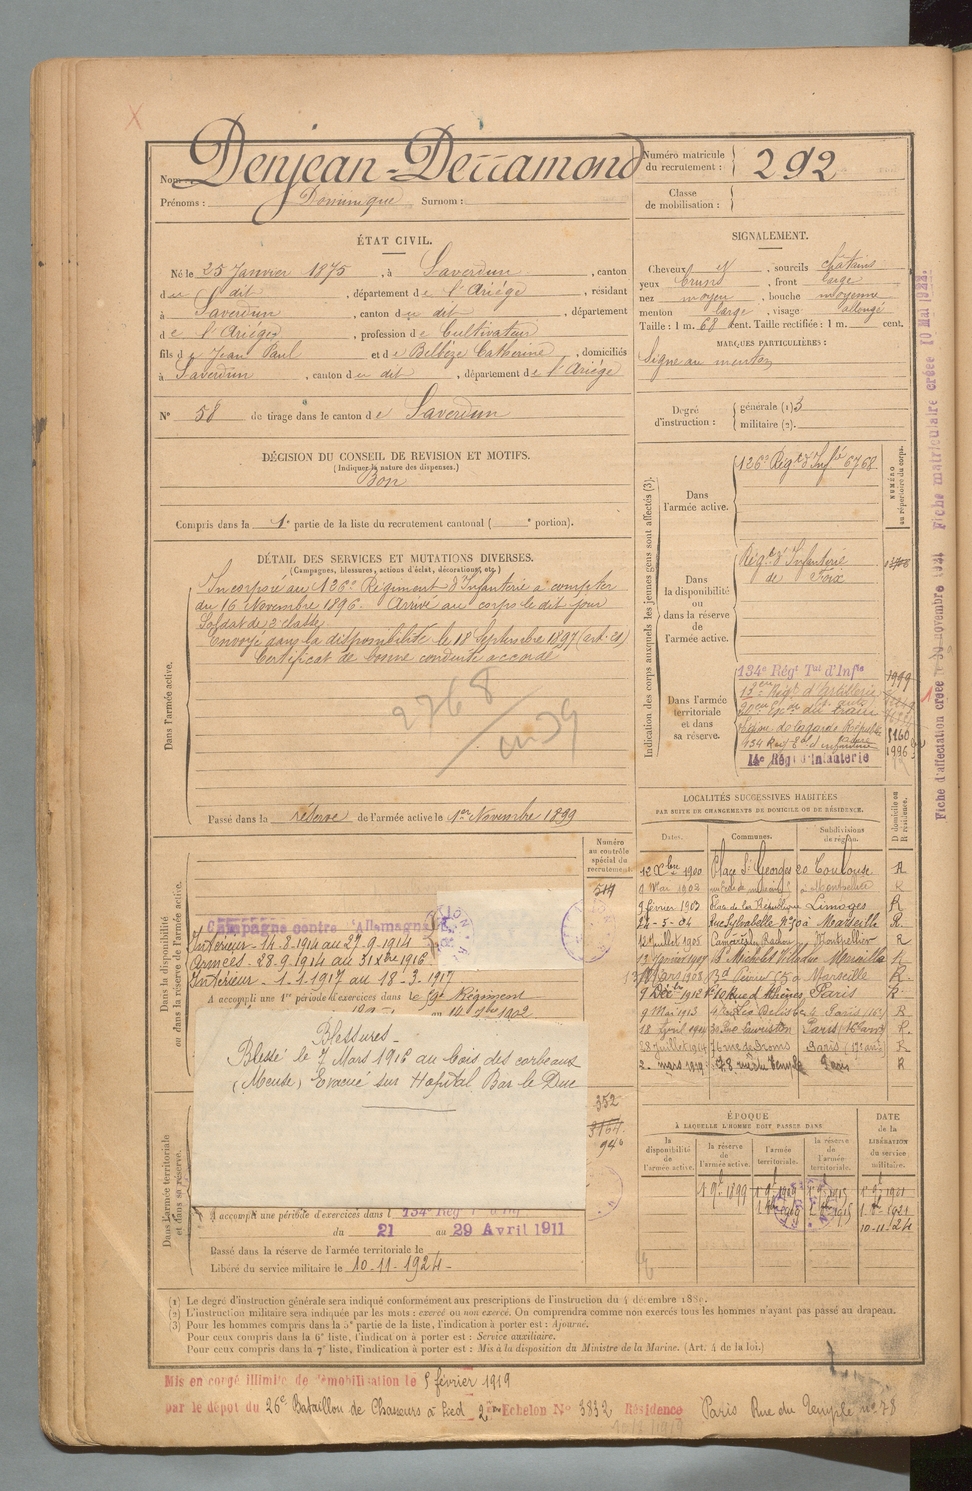 Nom : Denjean-Derramond
Prénoms : Dominique Surnom :
Numéro matricule du recrutement : 292
Classe de mobilisation :
ÉTAT CIVIL.
Né le 25 Janvier 1875, à Saverdun, canton
du dit, département de l'Ariége, résidant
à Saverdun, canton du dit, département
de l'Ariége, profession de Cultivateur
fils de Jean Paul et de Bellèze Catherine, domiciliés
à Saverdun, canton du dit, département de l'Ariége
N° 58 de tirage dans le canton de Saverdun
SIGNALEMENT.
Cheveux et, sourcils châtains
yeux bruns, front large
nez moyen, bouche moyenne
menton large, visage allongé
Taille : 1 m. 68 cent. Taille rectifiée : 1 m. cent.
MARQUES PARTICULIÈRES :
Signe au menton
Degré d'instruction : générale (1) 3
militaire (2).
DÉCISION DU CONSEIL DE REVISION ET MOTIFS.
(Indiquer la nature des dispenses.)
Bon
Compris dans la 1e partie de la liste du recrutement cantonal ( e portion).
DÉTAIL DES SERVICES ET MUTATIONS DIVERSES.
(Campagnes, blessures, actions d'éclat, décorations, etc.)
Dans l'armée active.
Incorporé au 126e Régiment d'Infanterie a compter
du 16 Novembre 1896. Arrivé au corps le dit jour
Soldat de 2e classe
Envoyé dans la disponibilité le 18 Septembre 1897 (art. 21)
Certificat de bonne conduite accordé
2768
Passé dans la réserve de l'armée active le 1er Novembre 1899
Indication des corps auxquels les jeunes gens sont affectés (3).
NUMÉRO au répertoire du corps.
Dans l'armée active.
126e Régt d'Infie 6768
Dans la disponibilité ou dans la réserve de l'armée active.
Régt d'Infanterie
de Foix
Dans l'armée territoriale et dans sa réserve.
134e Régt Tal d'Infie 1999
14e Régt d'Infanterie
LOCALITÉS SUCCESSIVES HABITÉES
PAR SUITE DE CHANGEMENTS DE DOMICILE OU DE RÉSIDENCE.
Dates. Communes. Subdivisions de région. D domicile ou R résidence.
12 Xbre 1900 Place St Georges 20 Toulouse R
9 Mai 1902 R
9 février 1903 Place de la République Limoges R
24-5-04 Rue Sylvabelle N° 50 à Marseille R.
12 Juillet 1905 Montpellier R
13 Janvier 1907 Marseille R
Mars 1908 Marseille R
9 Déc. 1912 Rue d'Athènes Paris R
9 Mai 1913 Paris R
18 Avril 1914 30 Rue Lauriston Paris R.
28 Juillet 1914 Paris (17e arrt) R
2 mars 1919 78 rue du Temple Paris R
Dans la disponibilité ou dans la réserve de l'armée active.
Numéro au contrôle spécial du recrutement.
Campagne contre l'Allemagne
Intérieur - 14.8.1914 au 27.9.1914
Armées - 28.9.1914 au 31 Xbre 1916
Intérieur - 1.1.1917 au 18.3.1917
A accompli une 1re période d'exercices dans le 59e Régiment
Blessures_
Blessé le 7 Mars 1916 au bois des corbeaux
(Meuse) Evacué sur Hopital Bar le Duc
352
3164
Dans l'armée territoriale et dans sa réserve.
A accompli une période d'exercices dans l 134e Rég
du 21 au 29 Avril 1911
Passé dans la réserve de l'armée territoriale le
Libéré du service militaire le 10-11-1924
ÉPOQUE
À LAQUELLE L'HOMME DOIT PASSER DANS
la disponibilité de l'armée active.
la réserve de l'armée active.
l'armée territoriale.
la réserve de l'armée territoriale.
DATE de la LIBÉRATION du service militaire.
1 9bre 1899 1 9bre 1909 1 9bre 1915 1 9bre 1921
10-11-24
(1) Le degré d'instruction générale sera indiqué conformément aux prescriptions de l'instruction du 4 décembre 1889.
(2) L'instruction militaire sera indiquée par les mots : exercé ou non exercé. On comprendra comme non exercés tous les hommes n'ayant pas passé au drapeau.
(3) Pour les hommes compris dans la 5e partie de la liste, l'indication à porter est : Ajourné.
Pour ceux compris dans la 6e liste, l'indication à porter est : Service auxiliaire.
Pour ceux compris dans la 7e liste, l'indication à porter est : Mis à la disposition du Ministre de la Marine. (Art. 4 de la loi.)
Mis en congé illimité de démobilisation le 5 février 1919
par le dépôt du 26e Bataillon de Chasseurs à pied 2em Echelon N° 3832 Résidence Paris Rue du Temple n° 78
Fiche d'affectation créée le 30 novembre 1921 Fiche matriculaire créée 10 Mai 1922.